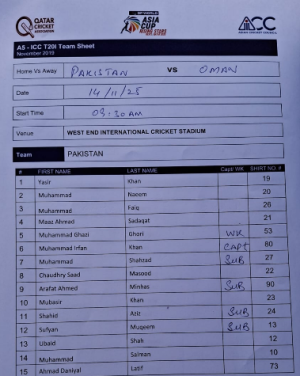 QATAR
CRICKET
ASSOCIATION
ASIA
CUP
RISING STARS
ACC
ASIAN CRICKET COUNCIL
A5 - ICC T20I Team Sheet
November 2019
Home Vs Away PAKISTAN VS OMAN
Date 14/11/25
Start Time 09:30 AM
Venue WEST END INTERNATIONAL CRICKET STADIUM
Team PAKISTAN
# FIRST NAME LAST NAME Capt/ WK SHIRT NO #
1 Yasir Khan 19
2 Muhammad Naeem 20
3 Muhammad Faiq 26
4 Maaz Ahmed Sadaqat 21
5 Muhammad Ghazi Ghori WK 53
6 Muhammad Irfan Khan CAPT 80
7 Muhammad Shahzad SUB 27
8 Chaudhry Saad Masood 22
9 Arafat Ahmed Minhas SUB 90
10 Mubasir Khan 23
11 Shahid Aziz SUB 24
12 Sufyan Muqeem SUB 13
13 Ubaid Shah 12
14 Muhammad Salman 10
15 Ahmad Daniyal Latif 73